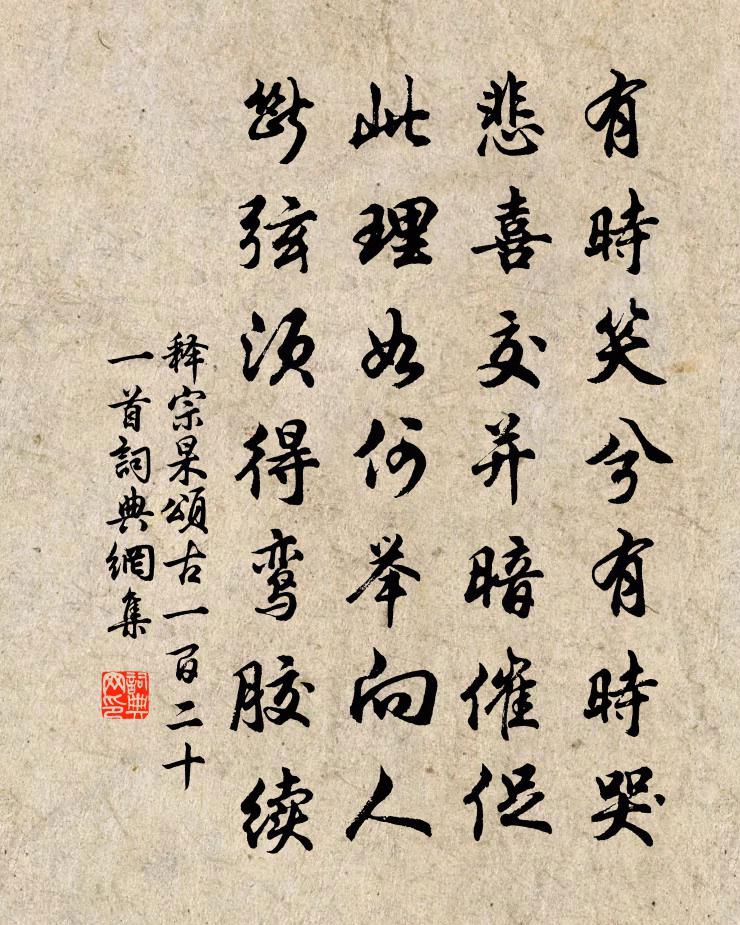 有時笑兮有時哭
悲喜交并暗催促
此理如何举向人
断弦须得鸾胶续
释宗杲頌古一百二十
一首詞典網集
詞典
网印